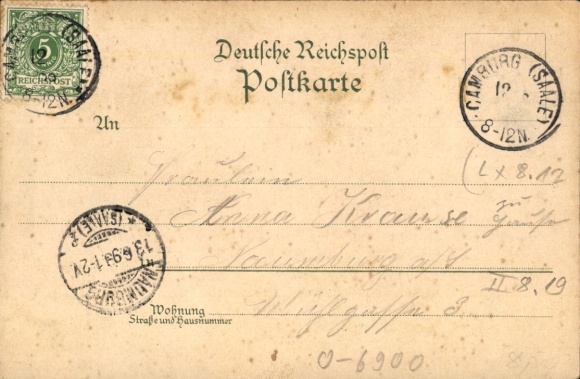 Deutsche Reichspost
Postkarte
5
REICHSPOST
CAMBURG (SAALE)
12
8-12N.
CAMBURG (SAALE)
12
8-12N.
An
Fräulein
Anna Krause
Naumburg a/S
NAUMBURG
* (SAALE) *
13.6.99.1-2V
Wohnung
Straße und Hausnummer
3.
L x 8.12
II 8.19
0-6900